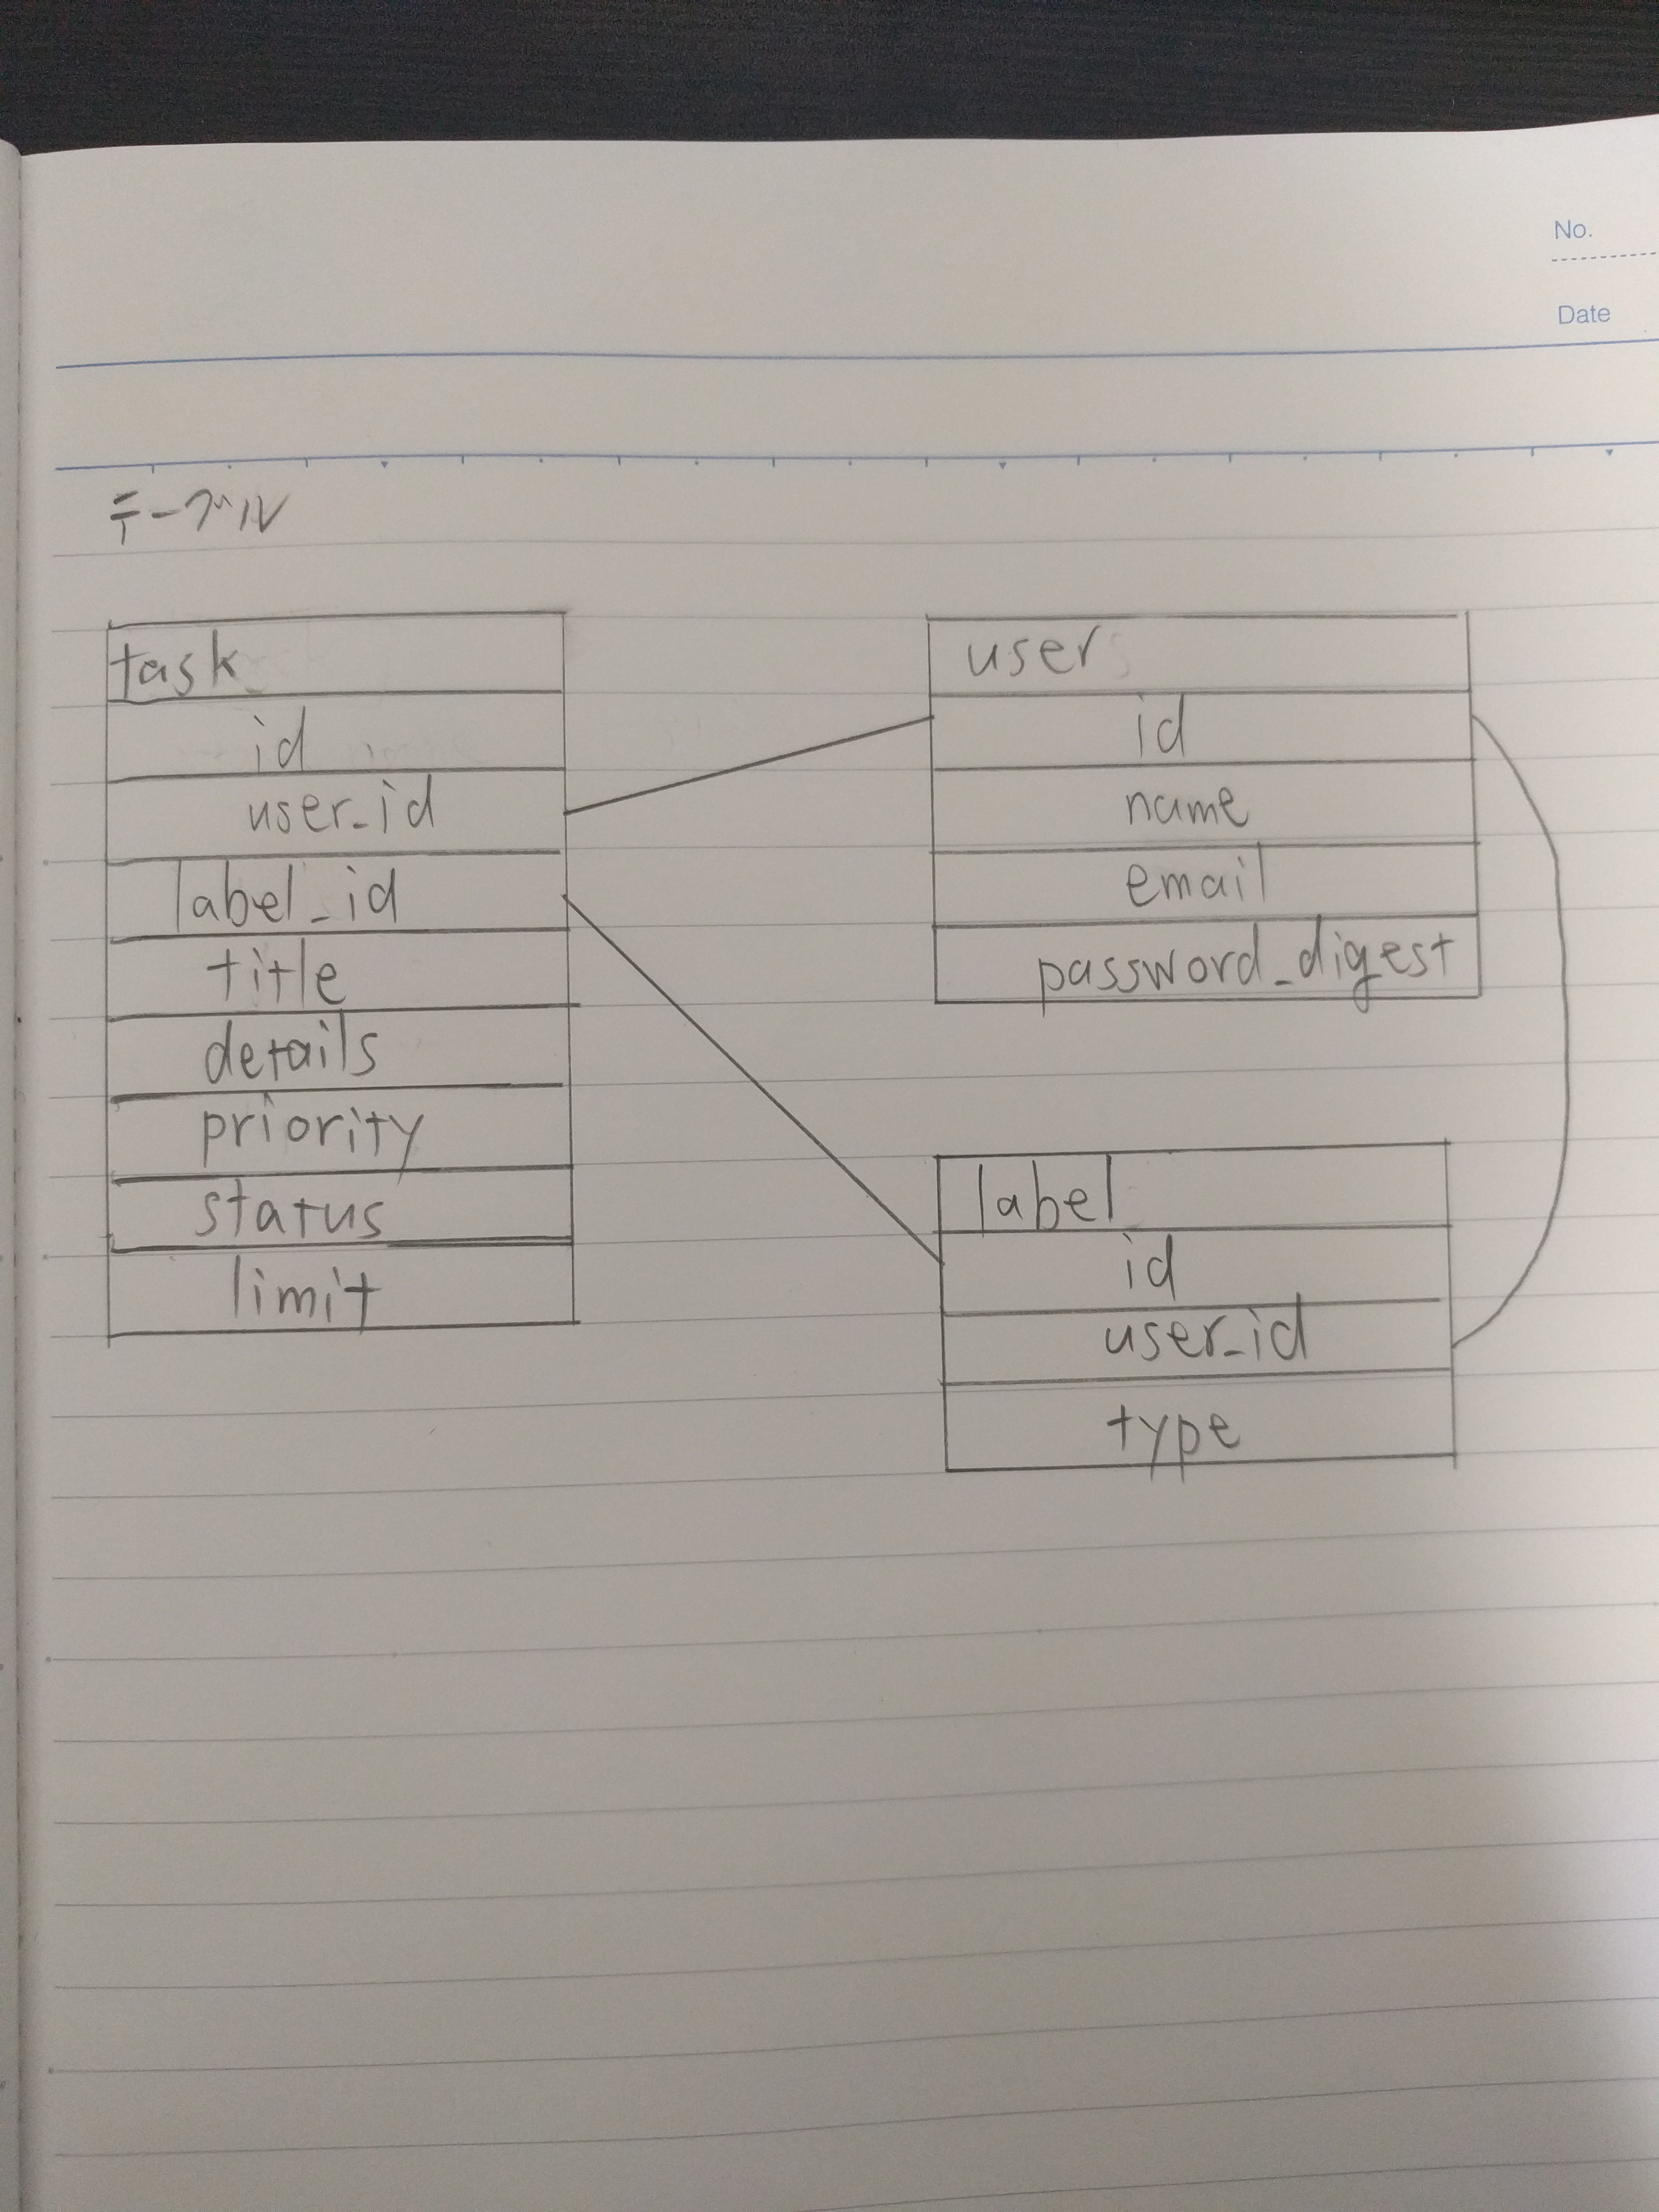 No.
Date
テーブル
task
id
user_id
label_id
title
details
priority
status
limit
user
id
name
email
password_digest
label
id
user_id
type